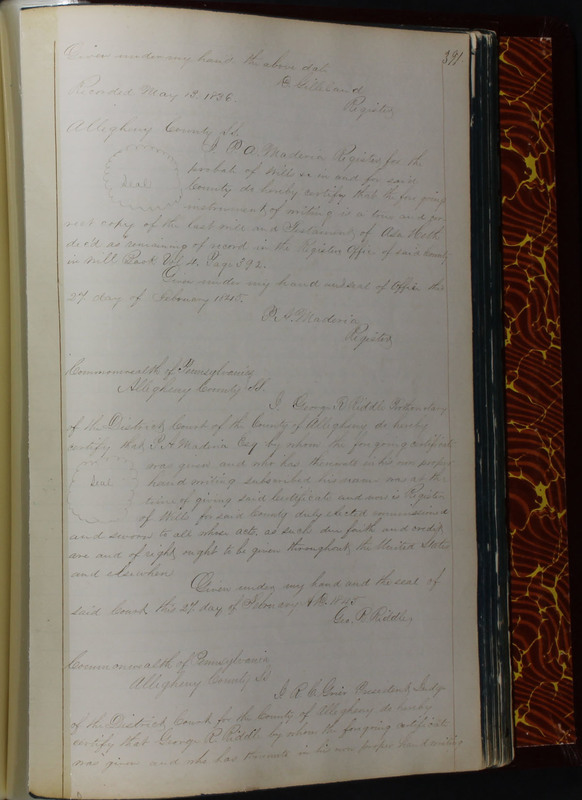 391
Given under my hand the above date
E Gilleland
Recorded May 13. 1836.
Register
Allegheny County Ss.
I P. A. Madeira Register for the
probat of Wills &c in and for said
Seal
County do hereby certify that the fore going
instrument of writing is a true and cor
rect copy of the last will and Testament of Asa
decd as remaining of record in the Register Office of said County
in Will Book Vol 4. Page 392.
Given under my hand and seal of Office the
27 day of February 1845.
P. A. Madeira
Register
Commonwealth of Pennsylvania
Allegheny County Ss.
I George R Riddle Prothonotary
of the District Court of the County of Allegheny do hereby
certify that P. A Madeira Esq by whom the foregoing certificate
was given and who has thereunto in his own proper
Seal
hand writing subscribed his name was at the
time of giving said Certificate and now is Register
of Wills for said County duly elected commissioned
and sworn to all whose acts, as such due faith and credit
are and of right ought to be given throughout the United States
and elsewhere
Given under my hand and the seal of
said Court this 27 day of February A D. 1845
Geo. R. Riddle,
Commonwealth of Pennsylvania
Allegheny County Ss
I R. C. Grier President Judge
of the District Court for the County of Allegheny do hereby
certify that George R. Riddle by whom the foregoing certificate
was given and who has thereunto in his own proper hand writing